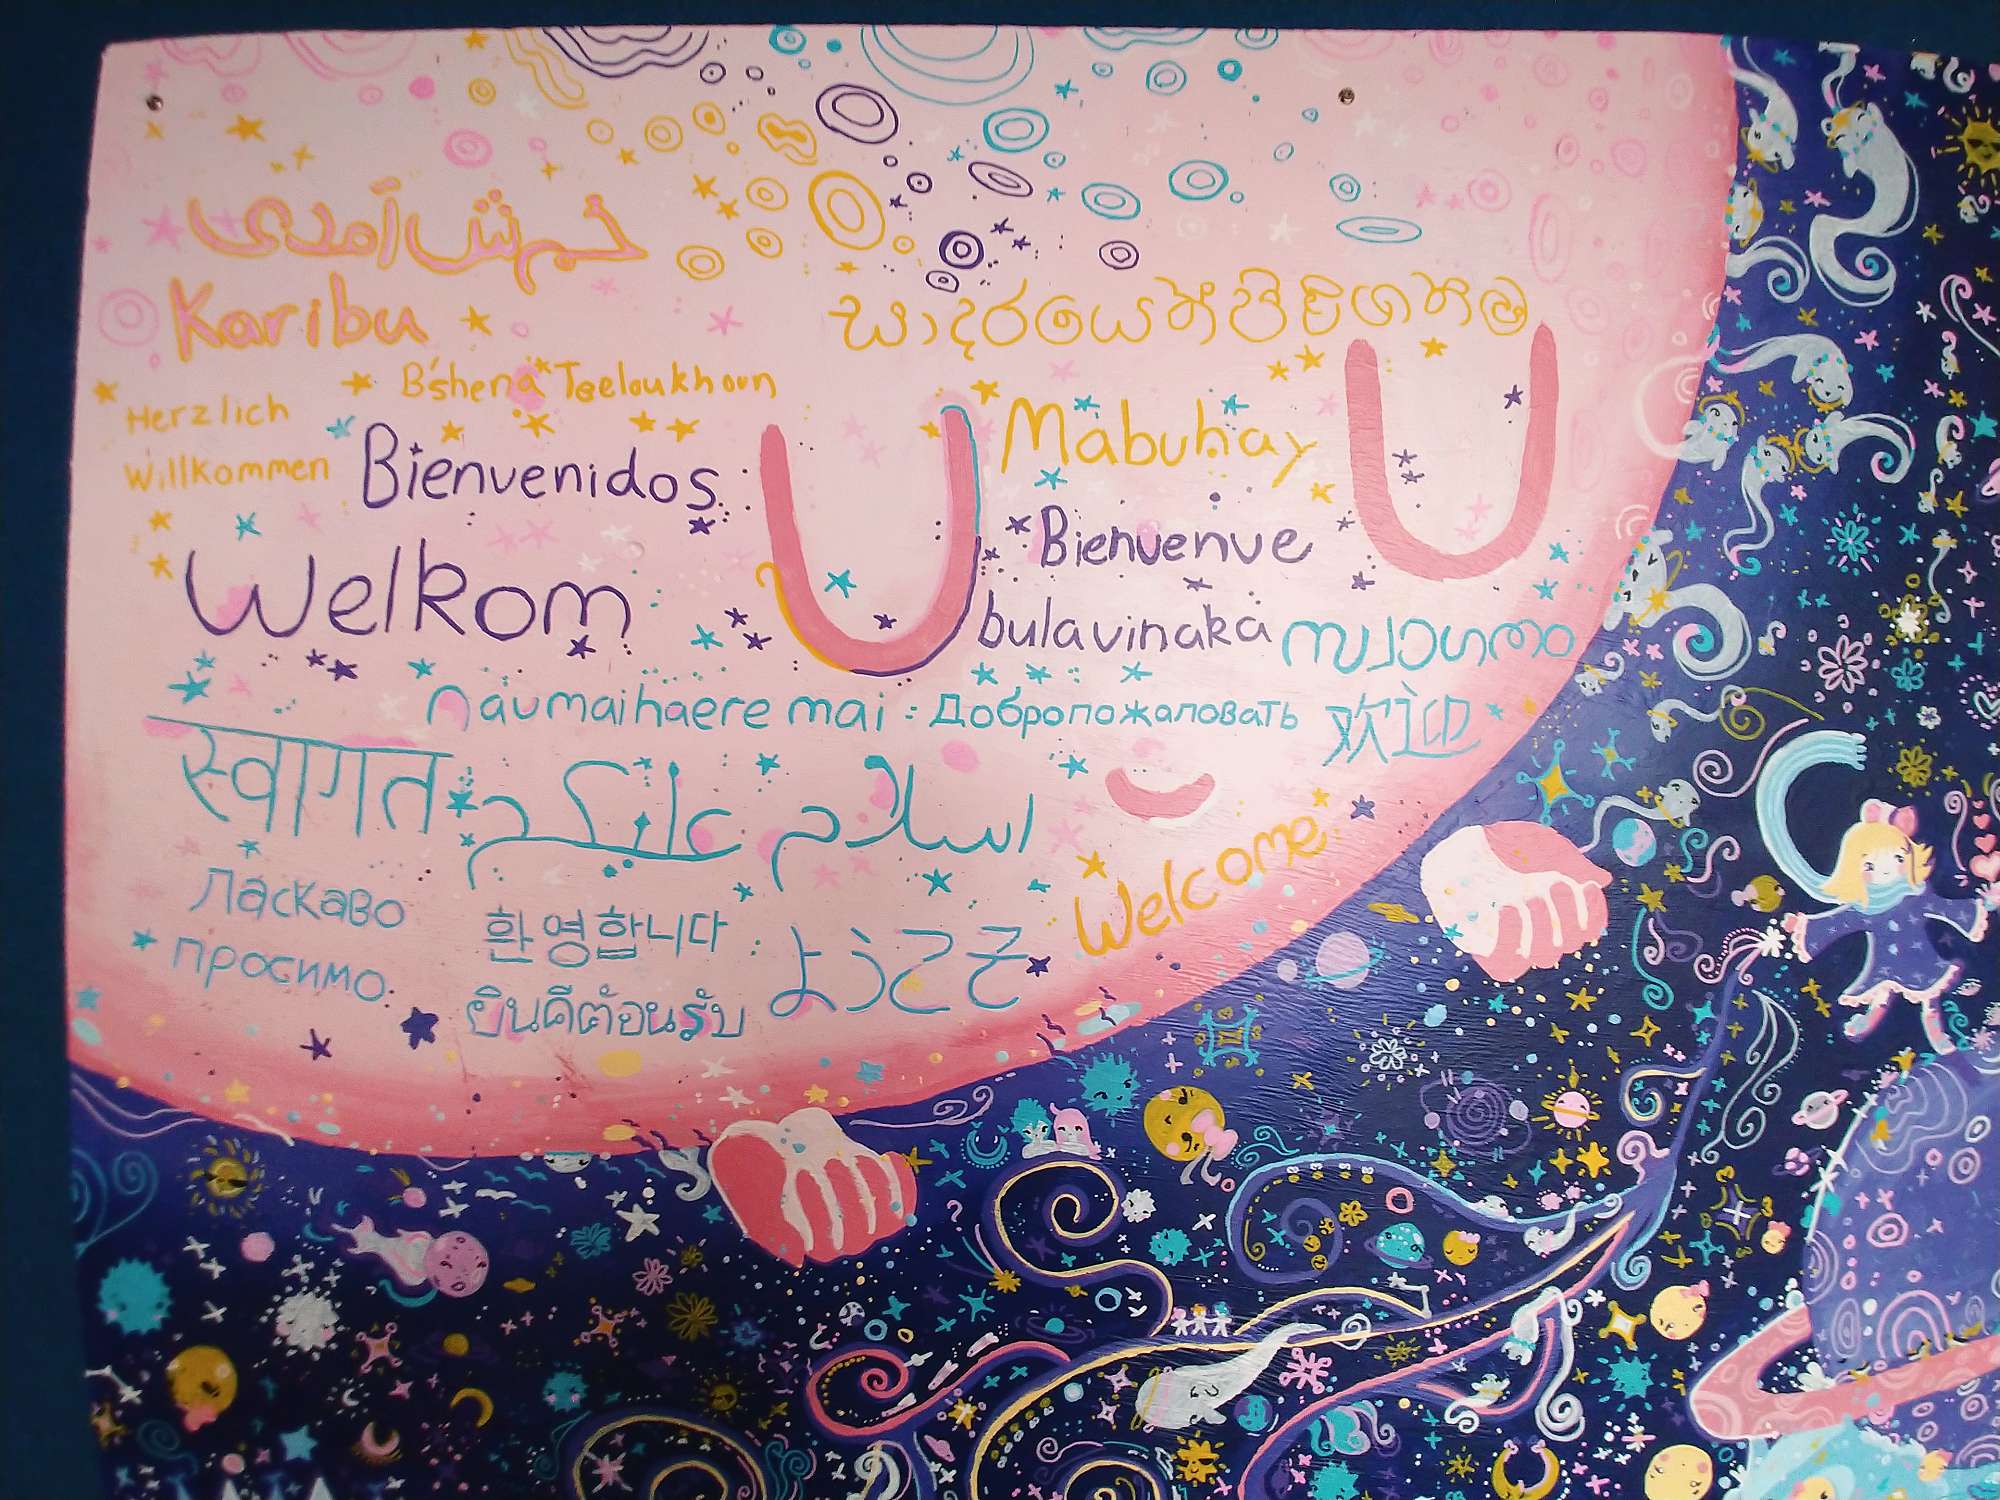 خوش آمدی
Karibu
සාදරයෙන් පිළිගනිමු
B'shena Teeloukhoun
Herzlich
Willkommen
Bienvenidos
Mabuhay
Welkom
Bienvenue
bulavinaka
സ്വാഗതം
naumai haere mai
Добропожаловать
欢迎
स्वागत
اسلام علیکم
Welcome
Ласкаво
просимо
환영합니다
ようこそ
ยินดีต้อนรับ